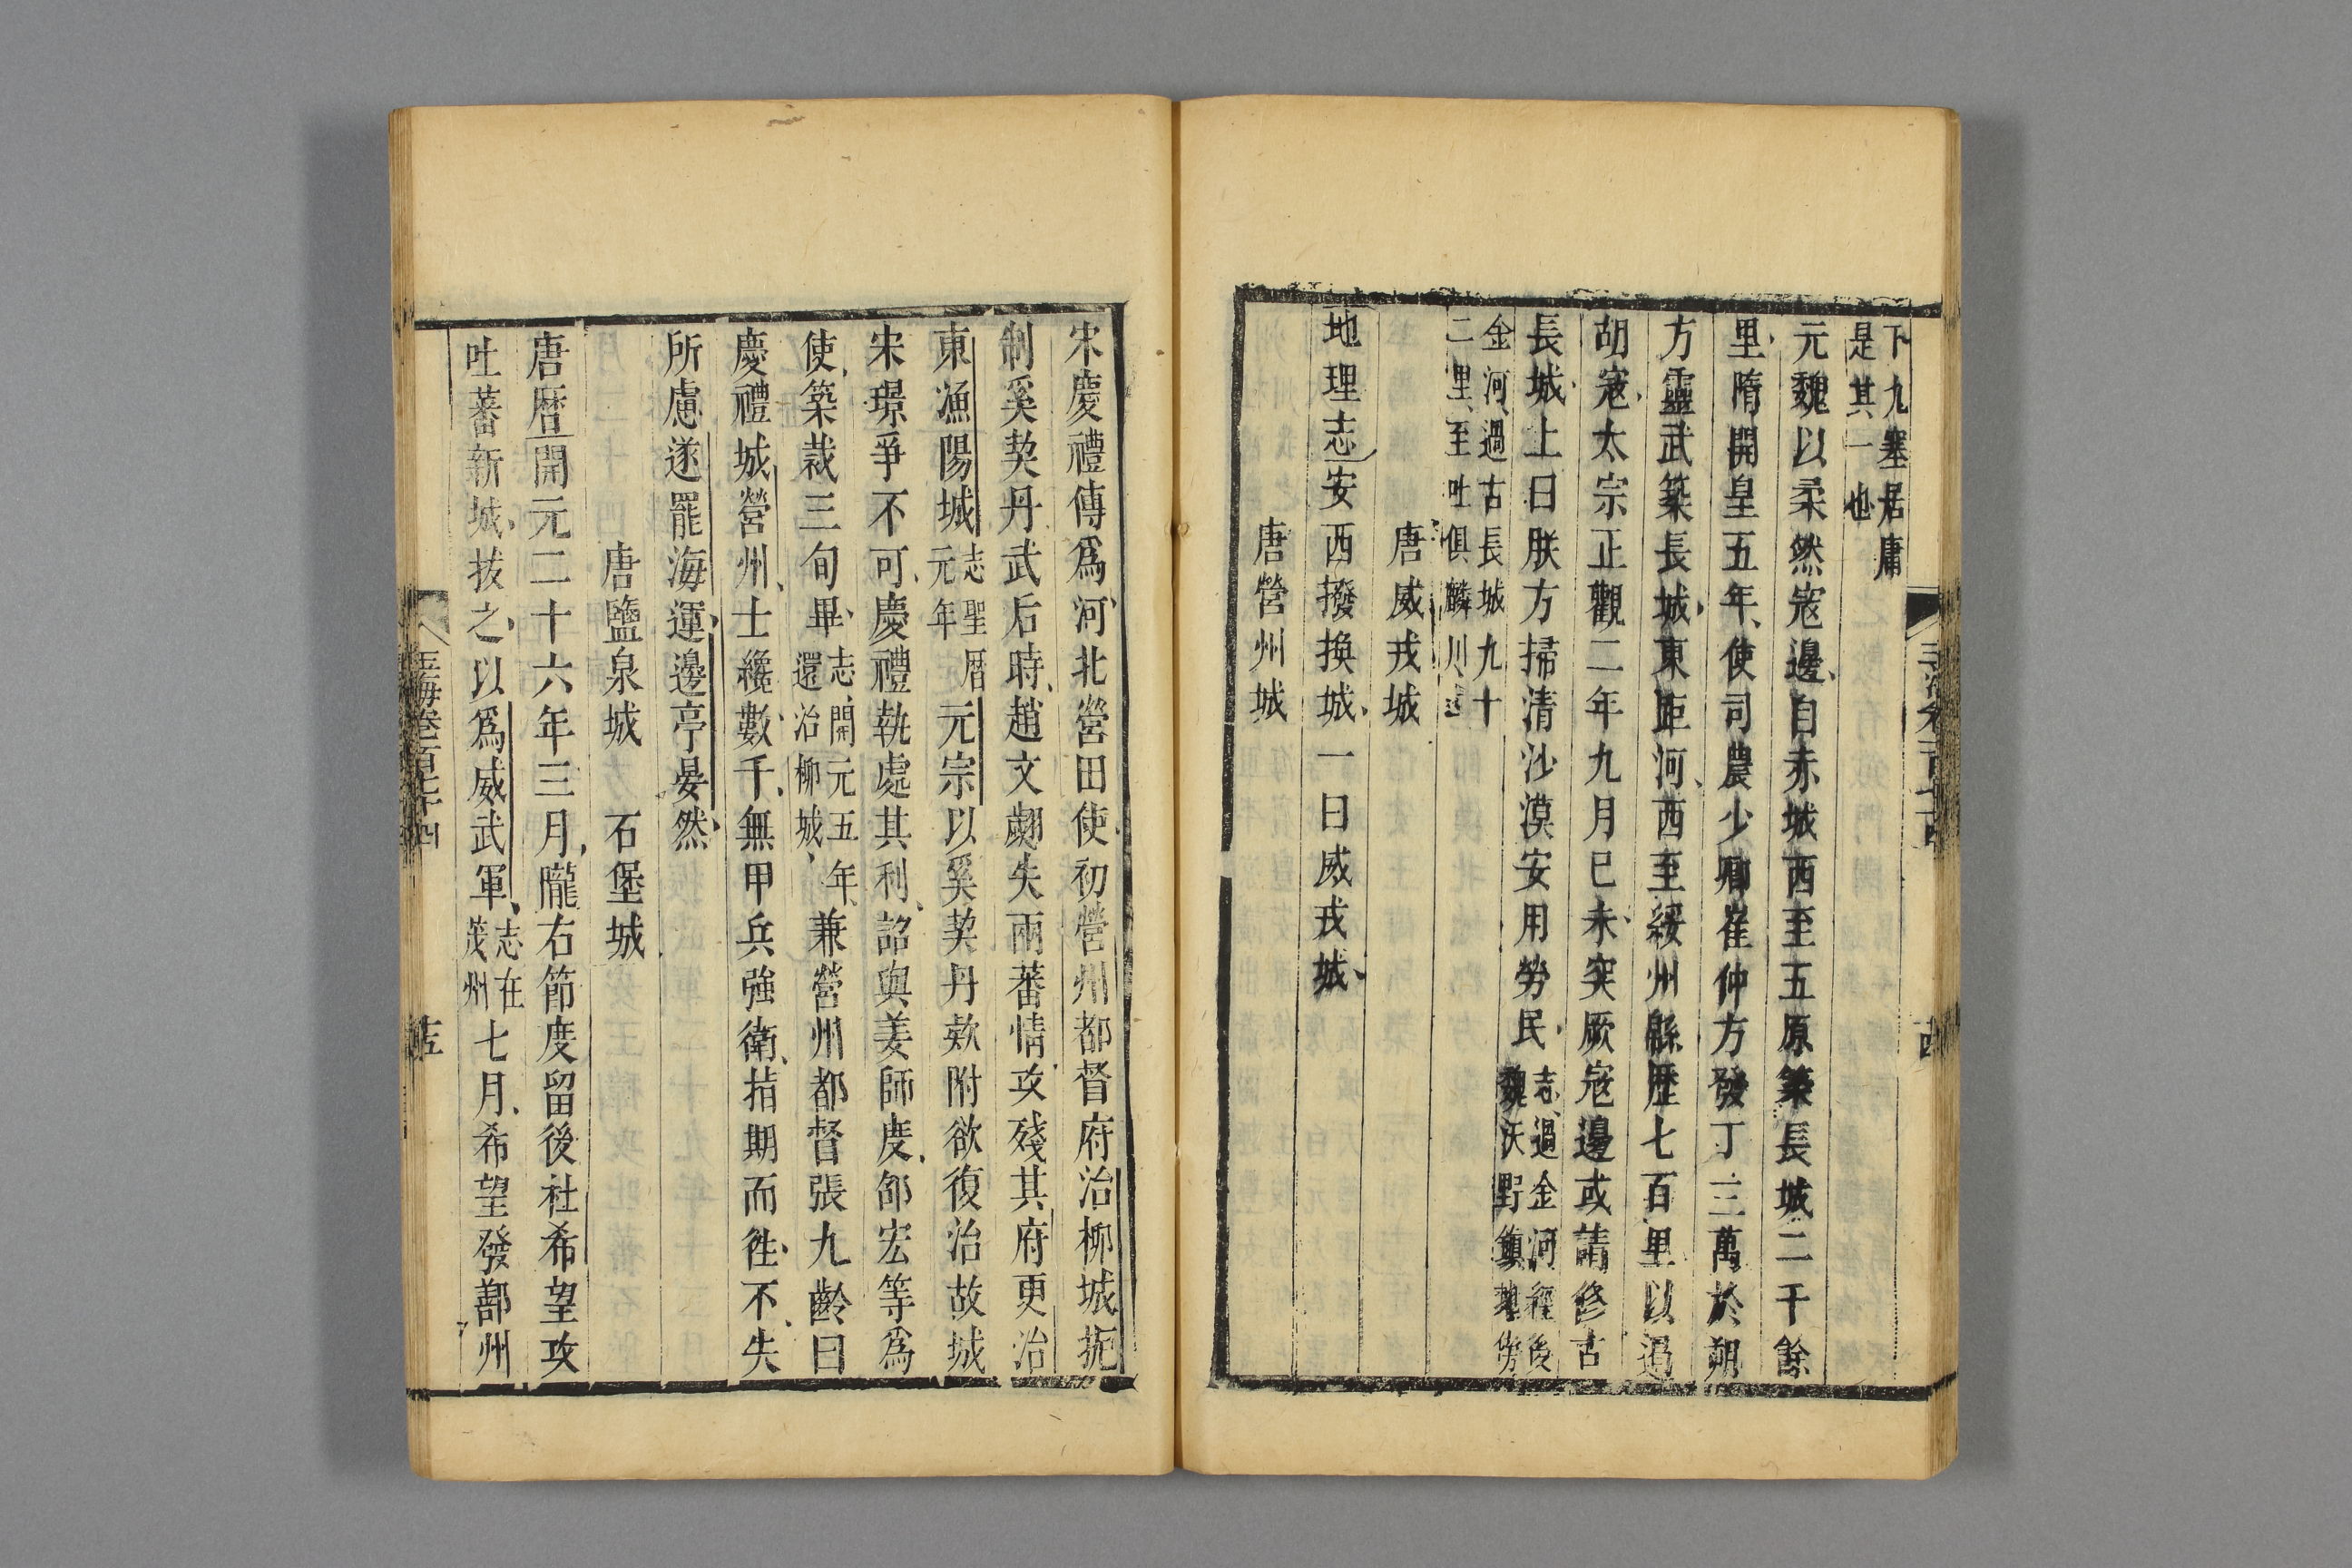 下九塞居庸
是其一也
元魏以柔然寇邊自赤城西至五原築長城二千餘
里隋開皇五年使司農少卿崔仲方發丁三萬於朔
方靈武築長城東距河西至綏州緜歷七百里以遏
胡寇太宗正觀二年九月已未突厥寇邊或請修古
長城上曰朕方掃清沙漠安用勞民
志過金河經後
魏沃野鎮城傍
金河過古長城九十
二里至吐俱麟川
唐威戎城
地理志安西撥換城一曰威戎城
唐營州城
宋慶禮傳爲河北營田使初營州都督府治柳城扼
制奚契丹武后時趙文翽失兩蕃情攻殘其府更治
東漁陽城
志聖曆
元年
元宗以奚契丹欵附欲復治故城
宋璟爭不可慶禮執處其利詔與姜師度邵宏等爲
使築裁三旬畢
志開元五年
還治柳城
兼營州都督張九齡曰
慶禮城營州士纔數千無甲兵強衛指期而徃不失
所慮遂罷海運邊亭晏然
唐鹽泉城 石堡城
唐曆開元二十六年三月隴右節度留後社希望攻
吐蕃新城拔之以爲威武軍
志在
茂州
七月希望發鄯州
玉海卷百七十四